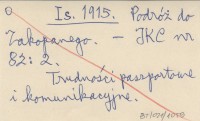 Is. 1915. Podróż do
Zakopanego. – IKC nr
82: 2.
Trudności paszportowe
i komunikacyjne.